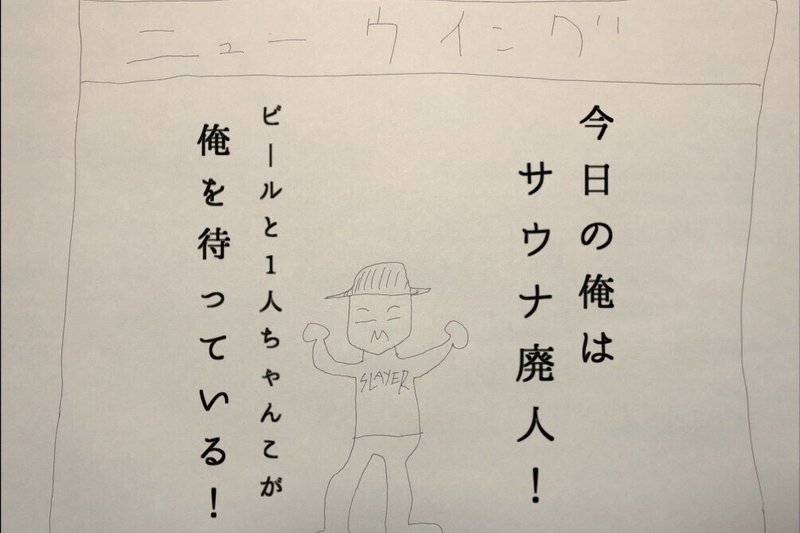 ニューウイング
今日の俺は
サウナ廃人!
ビールと1人ちゃんこが
俺を待っている!
SLAYER